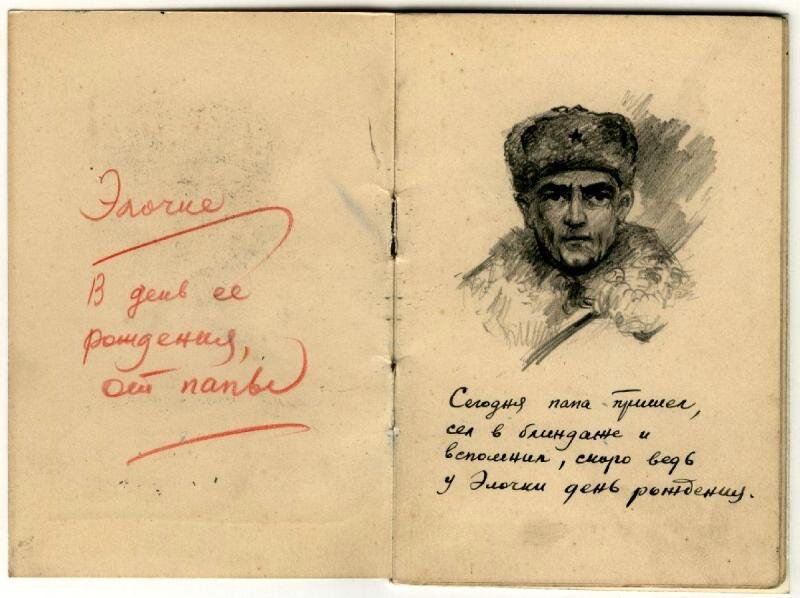 Элочке
В день ее
рождения,
от папы
Сегодня папа пришел,
сел в блиндаже и
вспомнил, скоро ведь
у Элочки день рождения.